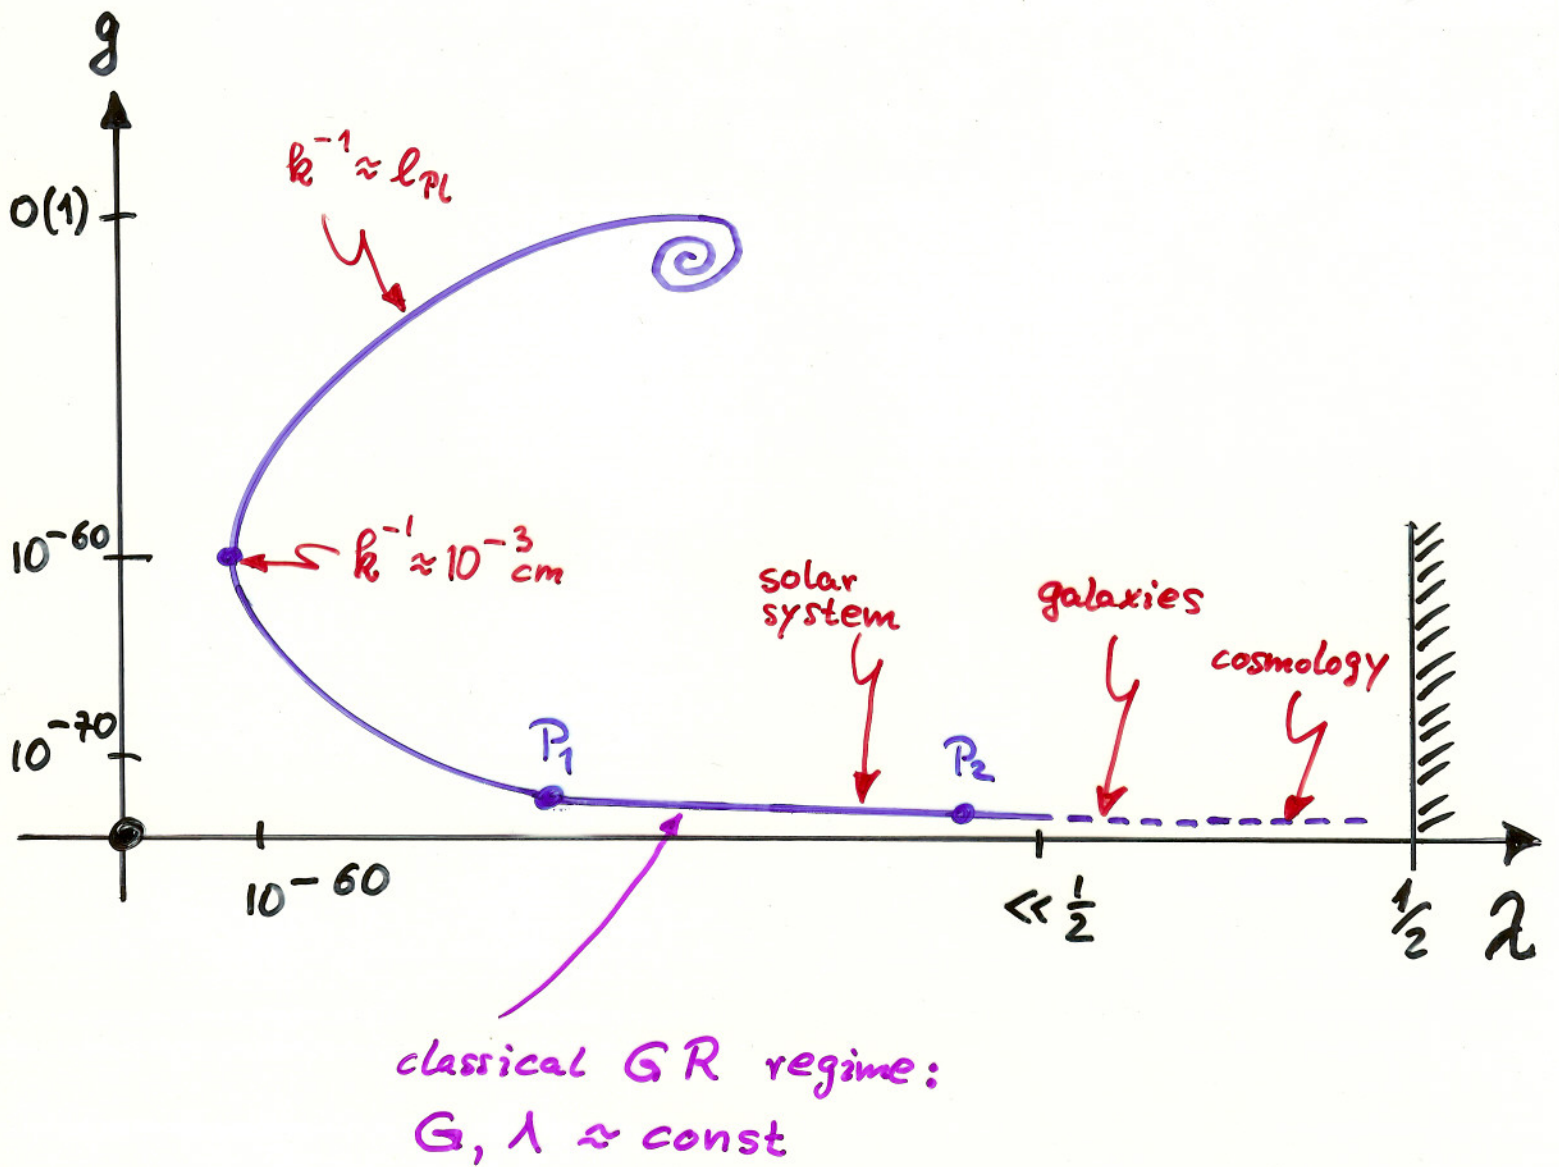 g
k⁻¹ ≈ ℓ_Pl
O(1)
10⁻⁶⁰
k⁻¹ ≈ 10⁻³ cm
solar
system
galaxies
cosmology
10⁻⁷⁰
P₁
P₂
10⁻⁶⁰
≪ 1/2
1/2
λ
classical GR regime:
G, Λ ≈ const